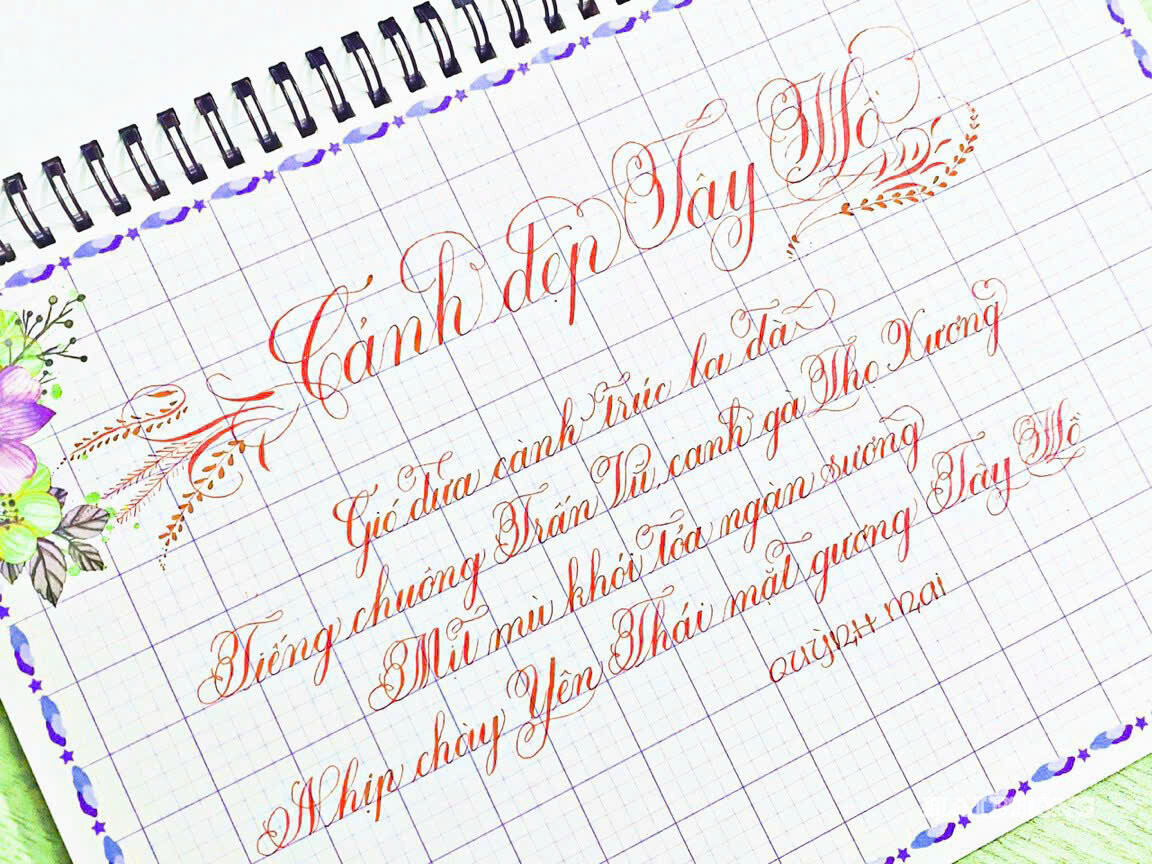 Cảnh đẹp Tây Hồ
Gió đưa cành trúc la đà
Tiếng chuông Trấn Vũ canh gà Thọ Xương
Mịt mù khói tỏa ngàn sương
Nhịp chày Yên Thái mặt gương Tây Hồ
QUỲNH MAI